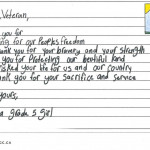 Veteran,
you for
ing for our Peoples freedom
ank you for your bravery and your strength
you for Protecting our beautiful land
risked your life for us and our country
ank you for your sacrifice and service
yours,
m grade 5 girl